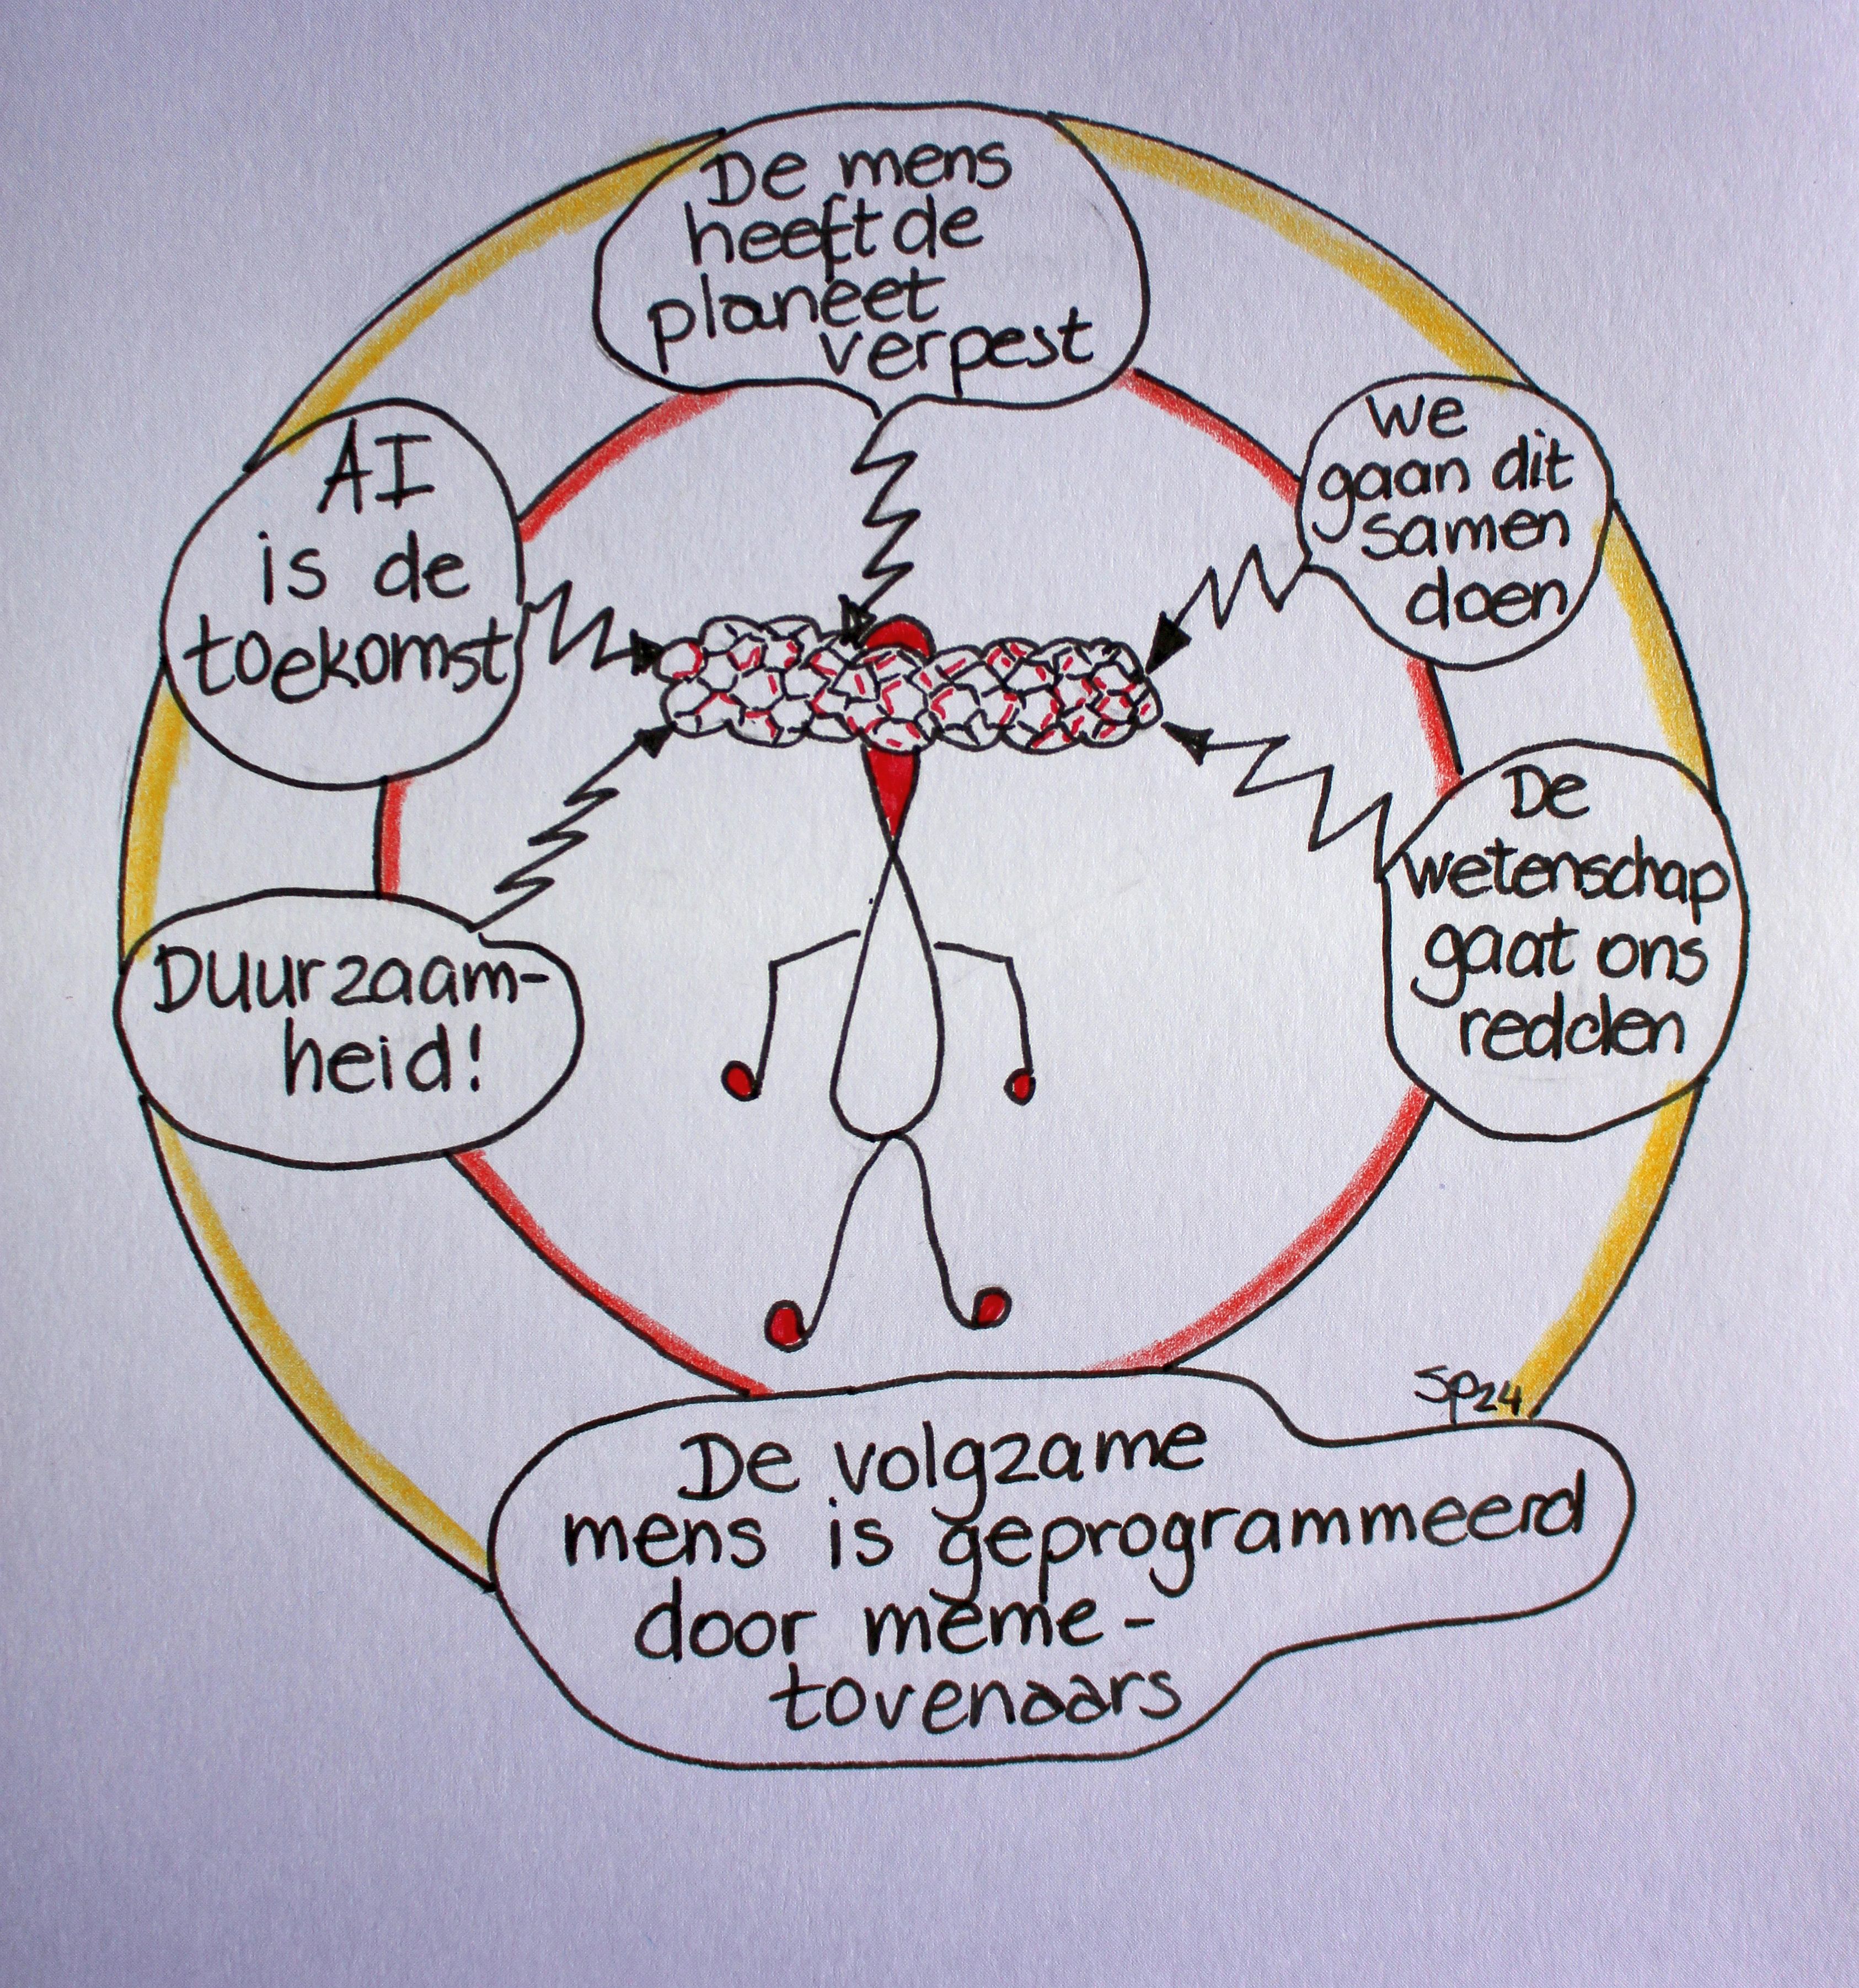 De mens
heeft de
planeet
verpest
AI
is de
toekomst
we
gaan dit
samen
doen
De
wetenschap
gaat ons
redden
Duurzaam-
heid!
Sp24
De volgzame
mens is geprogrammeerd
door meme-
tovenaars